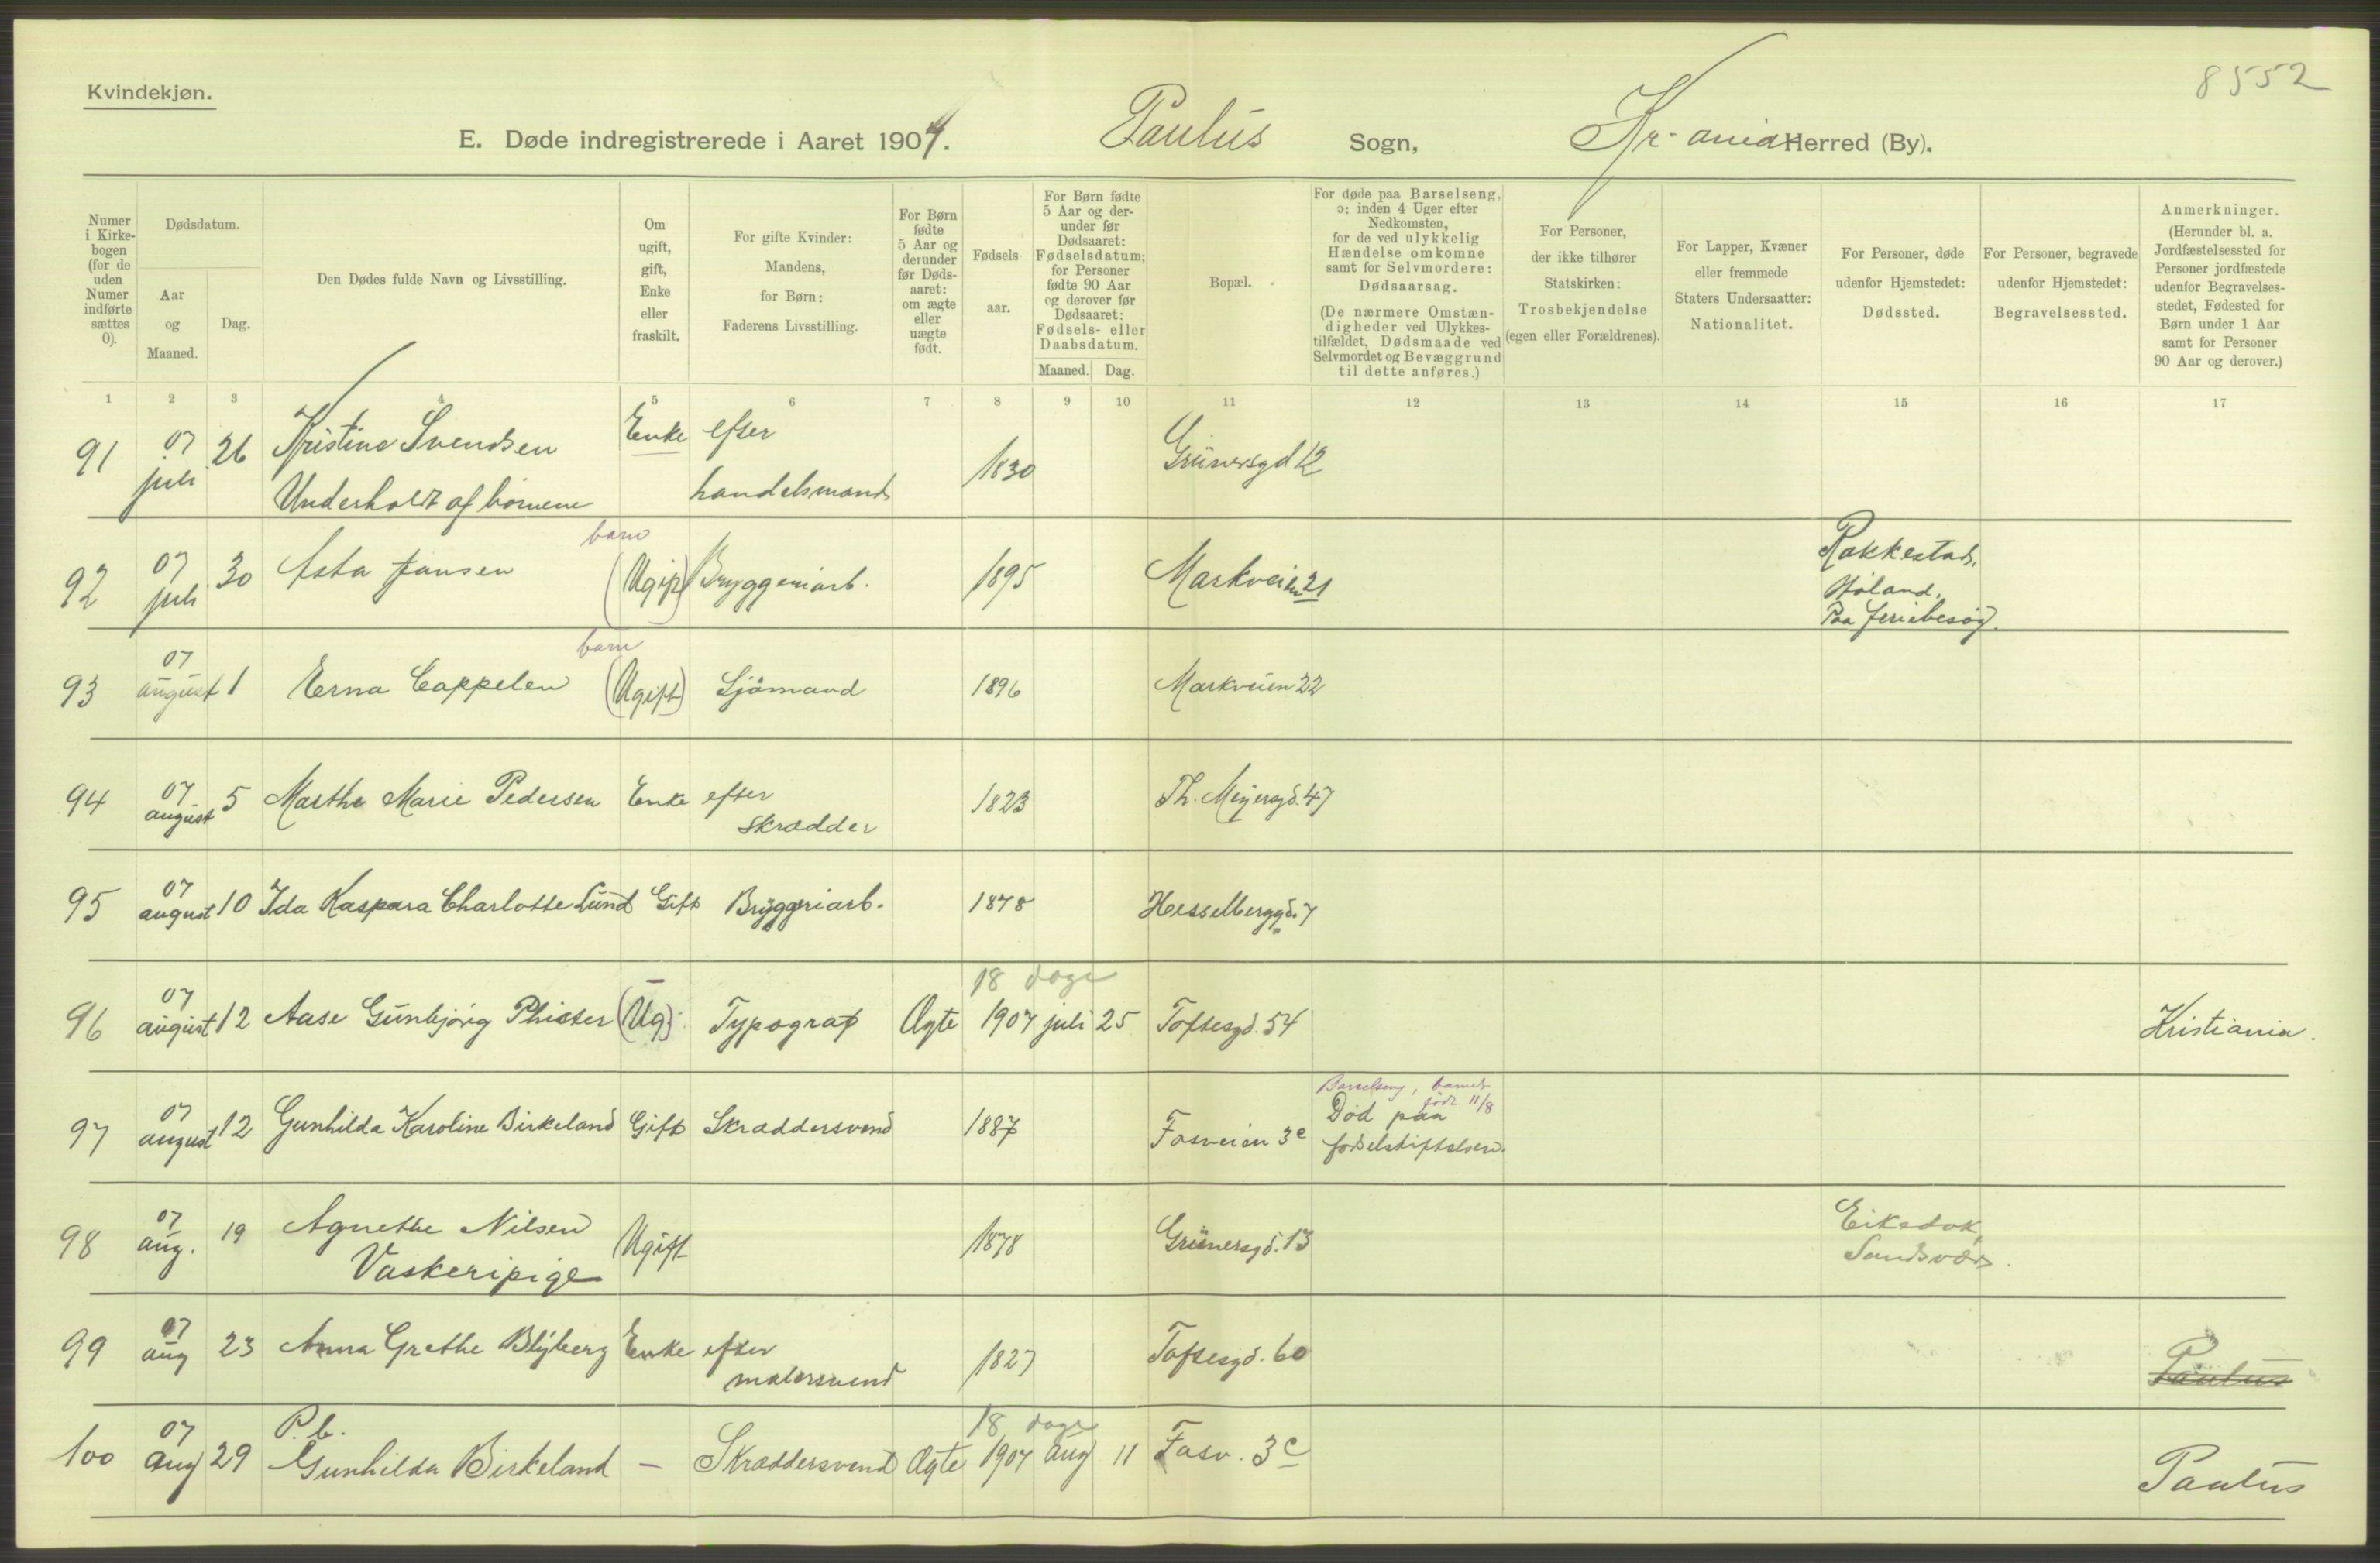 8552
Kvindekjøn.
E. Døde indregistrerede i Aaret 1907. Paulus Sogn, Kr-ania Herred (By).
Numer i Kirkebogen (for de uden Numer indførte sættes 0).
Dødsdatum.
Aar og Maaned.
Dag.
Den Dødes fulde Navn og Livsstilling.
Om ugift, gift, Enke eller fraskilt.
For gifte Kvinder: Mandens, for Børn: Faderens Livsstilling.
For Børn fødte 5 Aar og derunder før Dødsaaret: om ægte eller uægte født.
Fødselsaar.
For Børn fødte 5 Aar og derunder før Dødsaaret: Fødselsdatum; for Personer fødte 90 Aar og derover før Dødsaaret: Fødsels- eller Daabsdatum.
Maaned. Dag.
Bopæl.
For døde paa Barselseng, ɔ: inden 4 Uger efter Nedkomsten, for de ved ulykkelig Hændelse omkomne samt for Selvmordere: Dødsaarsag.
(De nærmere Omstændigheder ved Ulykkestilfældet, Dødsmaade ved Selvmordet og Bevæggrund til dette anføres.)
For Personer, der ikke tilhører Statskirken: Trosbekjendelse (egen eller Forældrenes).
For Lapper, Kvæner eller fremmede Staters Undersaatter: Nationalitet.
For Personer, døde udenfor Hjemstedet: Dødssted.
For Personer, begravede udenfor Hjemstedet: Begravelsessted.
Anmerkninger. (Herunder bl. a. Jordfæstelsessted for Personer jordfæstede udenfor Begravelsesstedet, Fødested for Børn under 1 Aar samt for Personer 90 Aar og derover.)
1 2 3 4 5 6 7 8 9 10 11 12 13 14 15 16 17
91 07 juli 26 Kristine Svendsen Enke efter 1830 Grünersgd 12
Underholdt af børnene handelsmand
barn
92 07 juli 30 Asta Jansen (Ugift) Bryggeriarb. 1895 Markveien 21 Rakkestad,
Høland.
Paa feriebesøg.
barn
93 07 august 1 Erna Cappelen (Ugift) Sjömand 1896 Markveien 22
94 07 august 5 Marthe Marie Pedersen Enke efter 1823 Th. Meyersgd. 47
skrædder
95 07 august 10 Ida Kaspara Charlotte Lund Gift Bryggeriarb. 1878 Hesselberggd. 7
18 dage
96 07 august 12 Aase Gunbjörg Phister (Ug) Typograf Ægte 1907 juli 25 Toftesgd. 54 Kristiania.
Barselseng, barnet født 11/8
97 07 august 12 Gunhilda Karoline Birkeland Gift Skræddersvend 1887 Fosveien 3c Død paa
fødselstiftelsen.
98 07 aug. 19 Agnethe Nilsen Ugift 1878 Grünersgd. 13 Eikedok,
Vaskeripige Sandsvær.
99 07 aug 23 Anna Grethe Blyberg Enke efter 1827 Toftesgd. 60 Paulus
malersvend
P. b. 18 dage
100 07 aug 29 Gunhilda Birkeland — Skræddersvend Ægte 1907 aug 11 Fosv. 3c Paulus